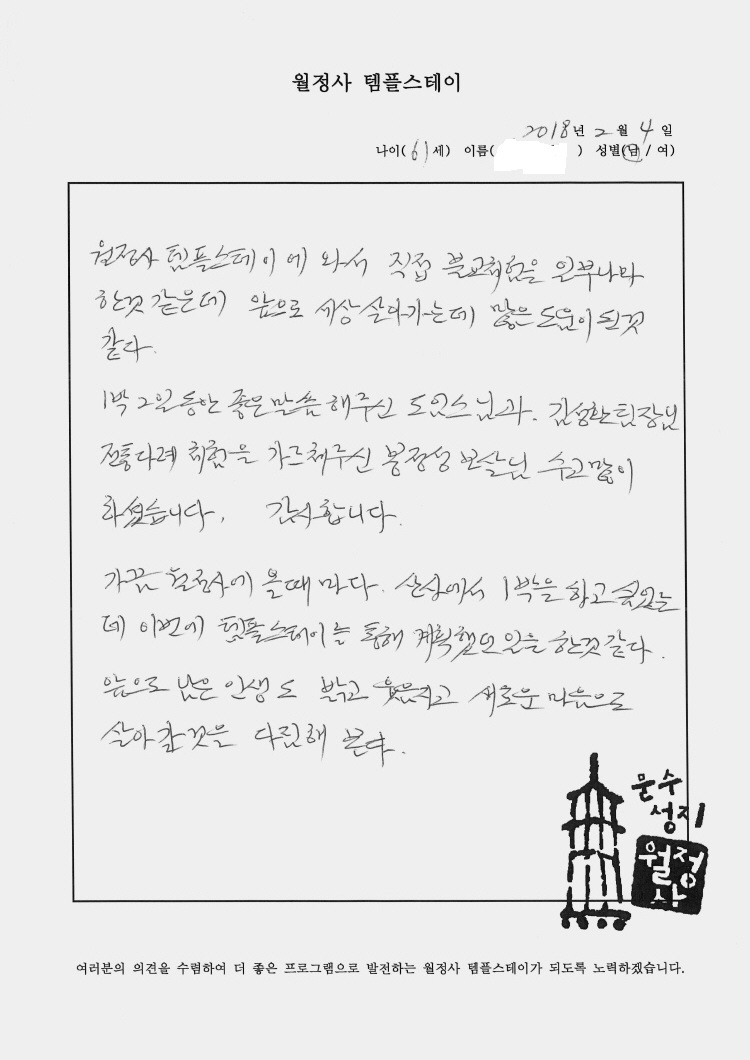 월정사 템플스테이
2018년 2월 4일
나이(61세) 이름( ) 성별(남/여)
월정사 템플스테이에 와서 직접 불교체험을 일부나마
한것 같은데 앞으로 세상 살아가는데 많은 도움이 될것
같다.
1박 2일 동안 좋은 말씀 해주신 스님과. 김성환팀장님
전통다례 체험을 가르쳐주신 보살님 수고많이
하셨습니다. 감사합니다.
가끔 월정사에 올때 마다. 산사에서 1박을 하고 싶었는
데 이번에 템플스테이를 통해 계획했던 일을 한것 같다.
앞으로 남은 인생도 밝고 새로운 마음으로
살아 갈것을 다짐해 본다.
문수
성지
월정
사
여러분의 의견을 수렴하여 더 좋은 프로그램으로 발전하는 월정사 템플스테이가 되도록 노력하겠습니다.